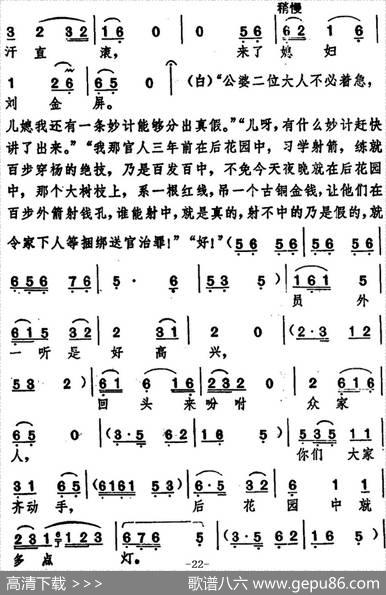 稍慢
3 2 3 2 1 6 0 0 5 6 6 2 1 6
汗 直 滚， 来了 媳 妇
1 2 6 6 5 0 (白)“公婆二位大人不必着急，
刘 金 屏。
儿媳我还有一条妙计能够分出真假。”“儿呀，有什么妙计赶快
讲了出来。”“我那官人三年前在后花园中，习学射箭，练就
百步穿杨的绝技，乃是百发百中，不免今天夜晚就在后花园
中，那个大树枝上，系一根红线，吊一个古铜金钱，让他们在
百步外箭射钱孔，谁能射中，就是真的，射不中的乃是假的，就
令家下人等捆绑送官治罪！”“好！”(5 6 5 6 5 6 5 6
6 5 6 7 6 5· 6 5 3 5) 1 6 1 5
员 外
6 1 5 3 2 2 3 1 2 0 (2·3 1 2
一 听 是 好 高 兴，
5 3 2) 6 1 6 1 6 2 3 2 0 2 6 1 6
回 头 来 吩 咐 众 家
6 5 0 (3·5 6 2 1 6 5) 5 3 5 1 1
人， 你们 大家
3 1 6 5 (6161 5 3) 5 3 2 1 6 1
齐动 手， 后 花 园 中 就
2 3 1 1 2 1 6 7 6 5 (3·5 6 2 1 6 5)
多 点 灯。
-22-
高清下载 >>>
歌谱八六 www.gepu86.com